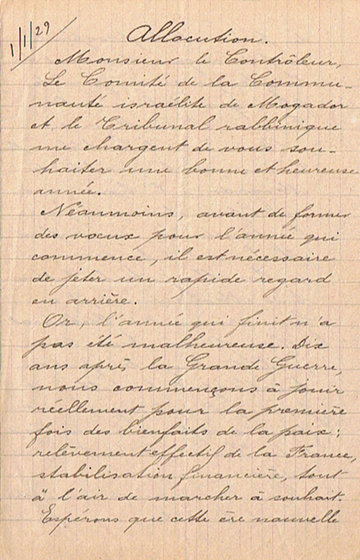 1/1/29
Allocution.
Monsieur le Contrôleur,
Le Comité de la Commu-
nauté israélite de Mogador
et le Tribunal rabbinique
me chargent de vous sou-
haiter une bonne et heureuse
année.
Néanmoins, avant de former
des vœux pour l'année qui
commence, il est nécessaire
de jeter un rapide regard
en arrière.
Or, l'année qui finit n'a
pas été malheureuse. Dix
ans après la Grande Guerre,
nous commençons à jouir
réellement pour la première
fois des bienfaits de la paix:
relèvement effectif de la France,
stabilisation financière, tout
a l'air de marcher à souhait.
Espérons que cette ère nouvelle